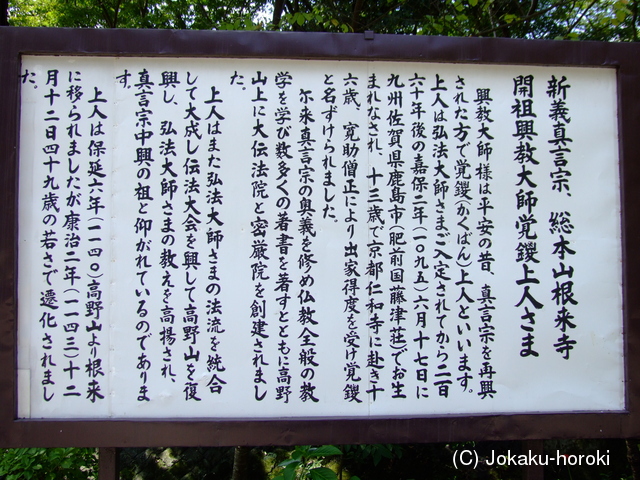 新義真言宗、総本山根来寺
開祖興教大師覚鑁上人さま
興教大師様は平安の昔、真言宗を再興
された方で覚鑁(かくばん)上人といいます。
上人は弘法大師さまご入定されてから二百
六十年後の嘉保二年(一〇九五)六月十七日に
九州佐賀県鹿島市(肥前国藤津荘)でお生
まれなされ、十三歳で京都仁和寺に赴き十
六歳、寛助僧正により出家得度を受け覚鑁
と名ずけられました。
尓来真言宗の奥義を修め仏教全般の教
学を学び数多くの著書を著すとともに高野
山上に大伝法院と密厳院を創建されまし
た。
上人はまた弘法大師さまの法流を統合
して大成し伝法大会を興して高野山を復
興し、弘法大師さまの教えを高揚され、
真言宗中興の祖と仰がれているのでありま
す。
上人は保延六年(一一四〇)高野山より根来
に移られましたが康治二年(一一四三)十二
月十二日四十九歳の若さで遷化されまし
た。
(C) Jokaku-horoki